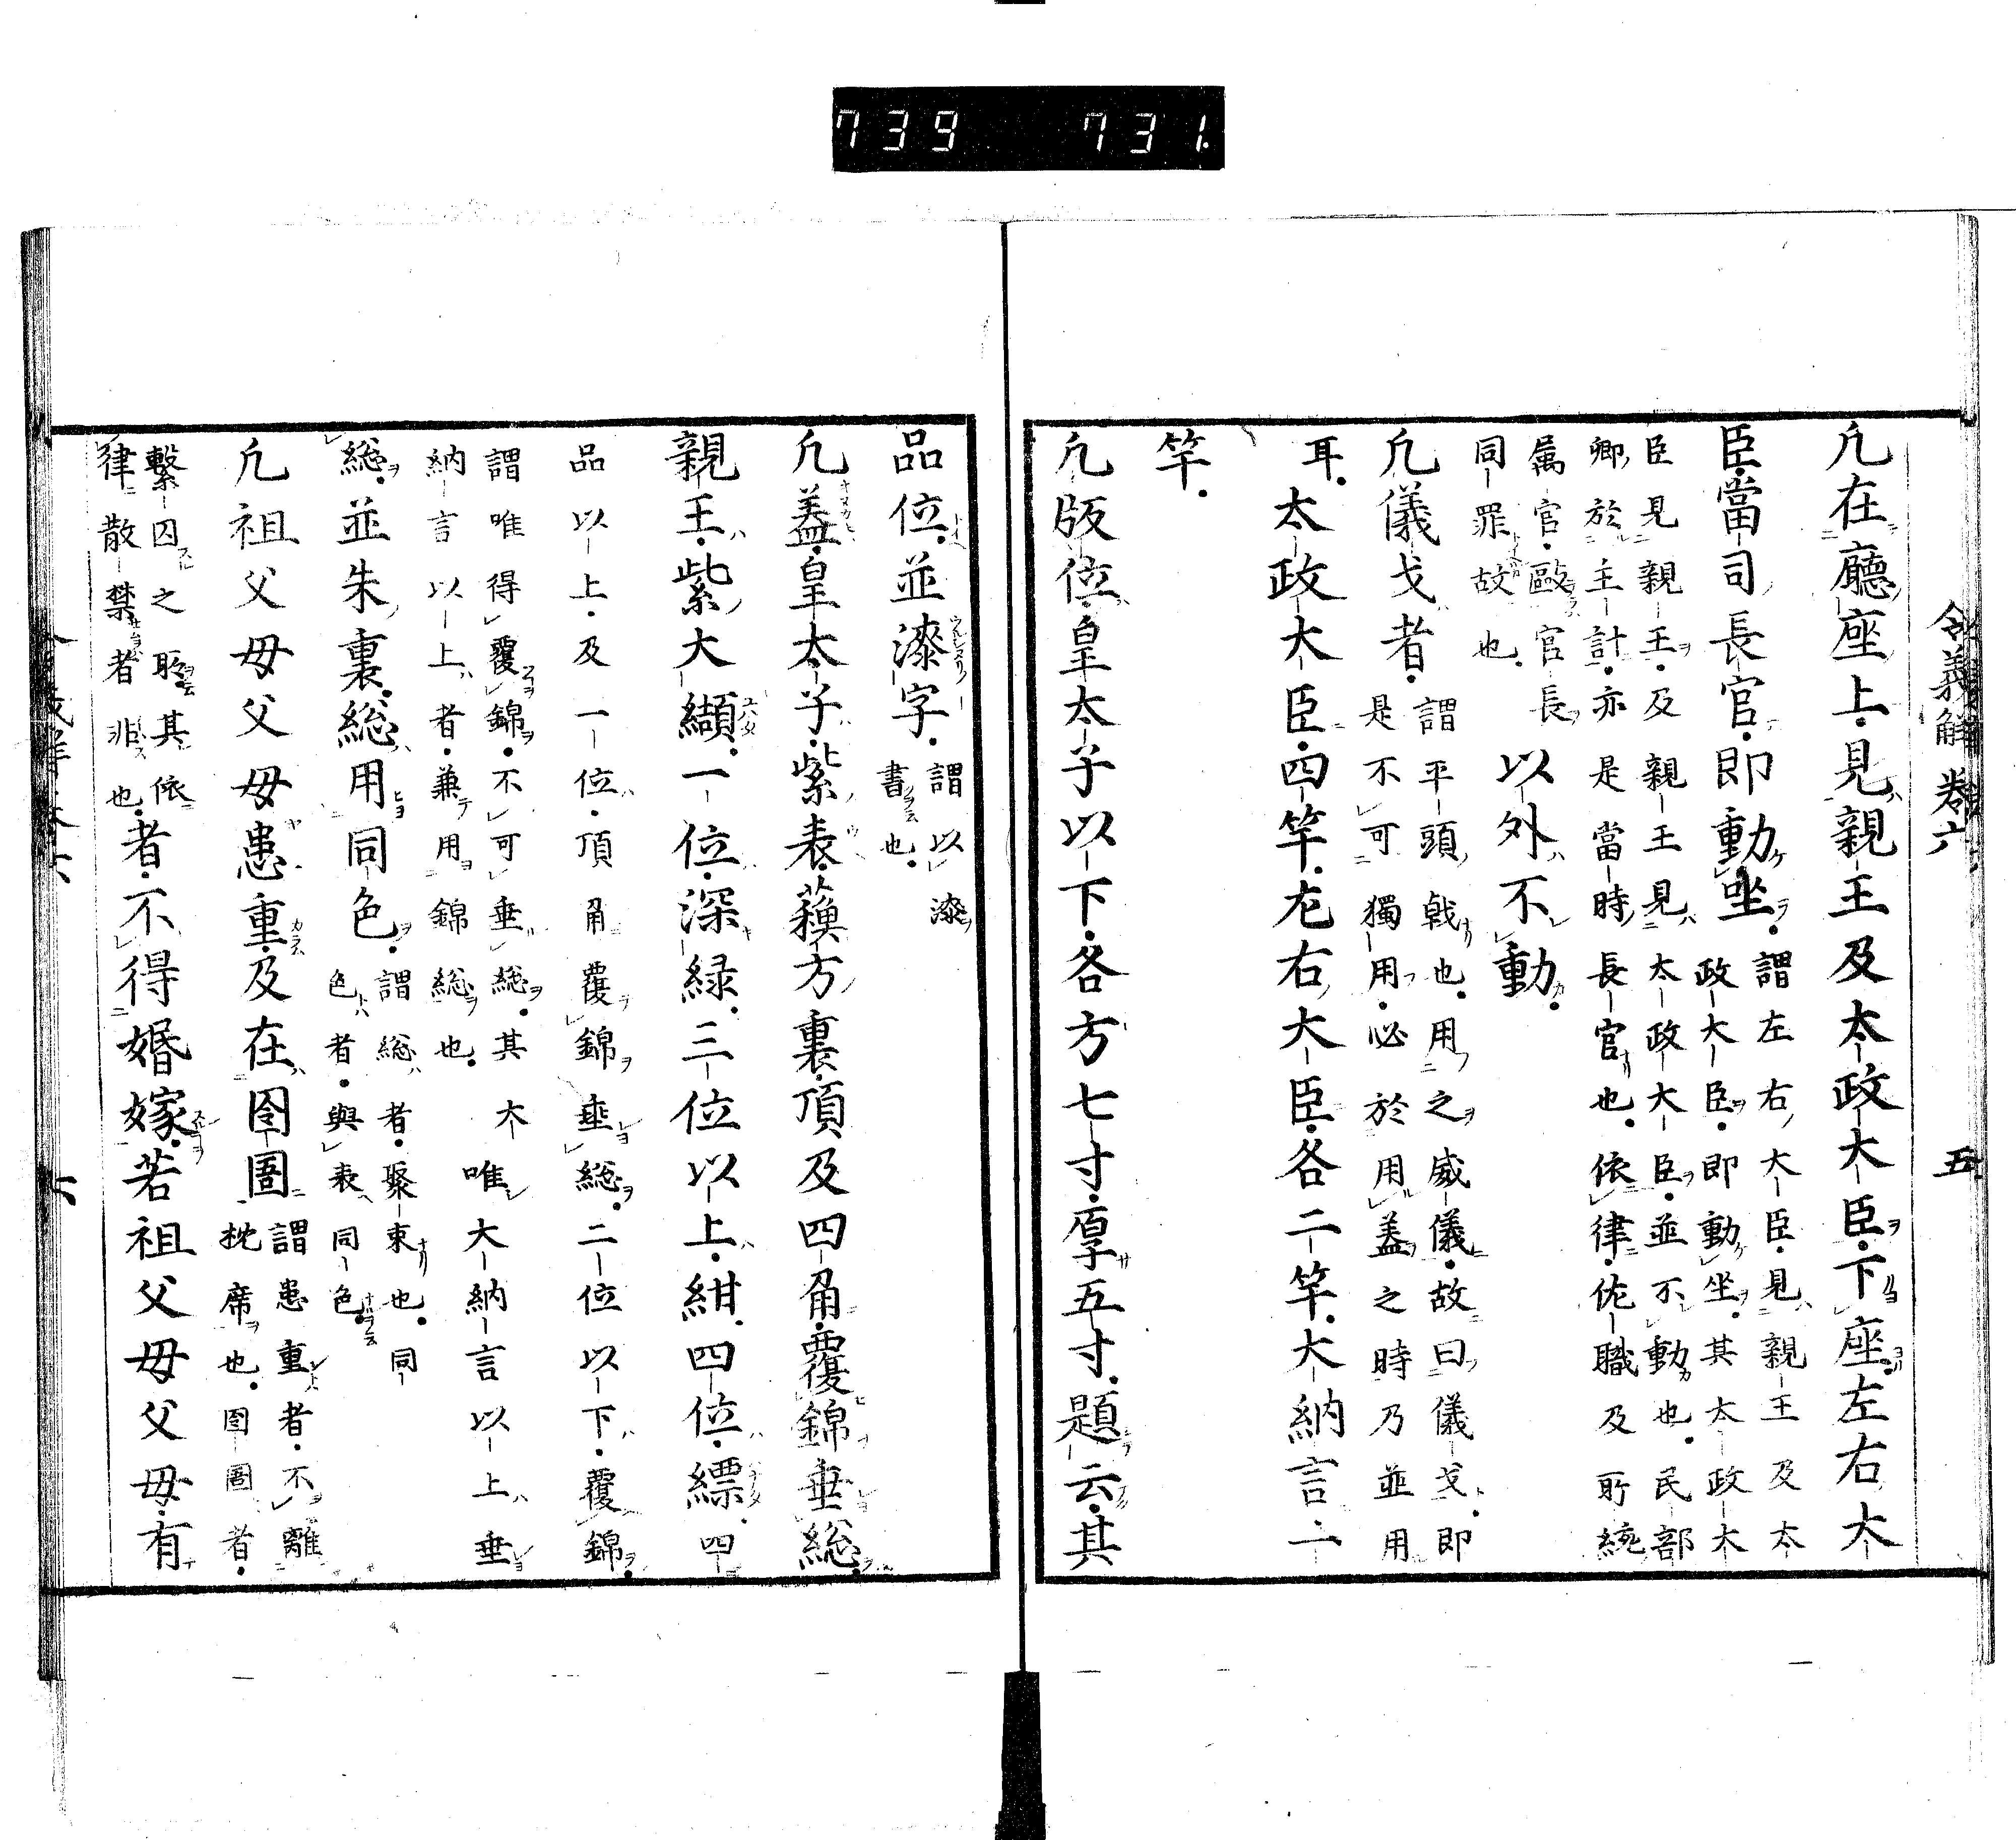 739 731.
令義解 卷六 五
凢在廳座上見親王及太政大臣下座左右大
臣當司長官即動坐謂左右大臣見親王及太
政大臣即動坐其太政大
臣見親王及親王見太政大臣並不動也民部
卿於主計亦是當時長官也依律佐職及所統
属官毆官長
同罪故也以外不動
凢儀戈者謂平頭戟也用之威儀故曰儀戈即
是不可獨用必於用蓋之時乃並用
耳太政大臣四竿左右大臣各二竿大納言一
竿
凢版位皇太子以下各方七寸厚五寸題云其
品位並漆字謂以漆
書也
凢蓋皇太子紫表蘓方裏頂及四角覆錦垂総
親王紫大纈一位深緑三位以上紺四位縹四
品以上及一位頂角覆錦垂総二位以下覆錦
謂唯得覆錦不可垂総其大
納言以上者兼用錦総也唯大納言以上垂
総並朱裏総用同色謂総者聚束也同
色者與表同色
凢祖父母父母患重及在囹圄謂患重者不離
枕席也囹圄者
繫囚之所其依
律散禁者非也者不得婚嫁若祖父母父母有